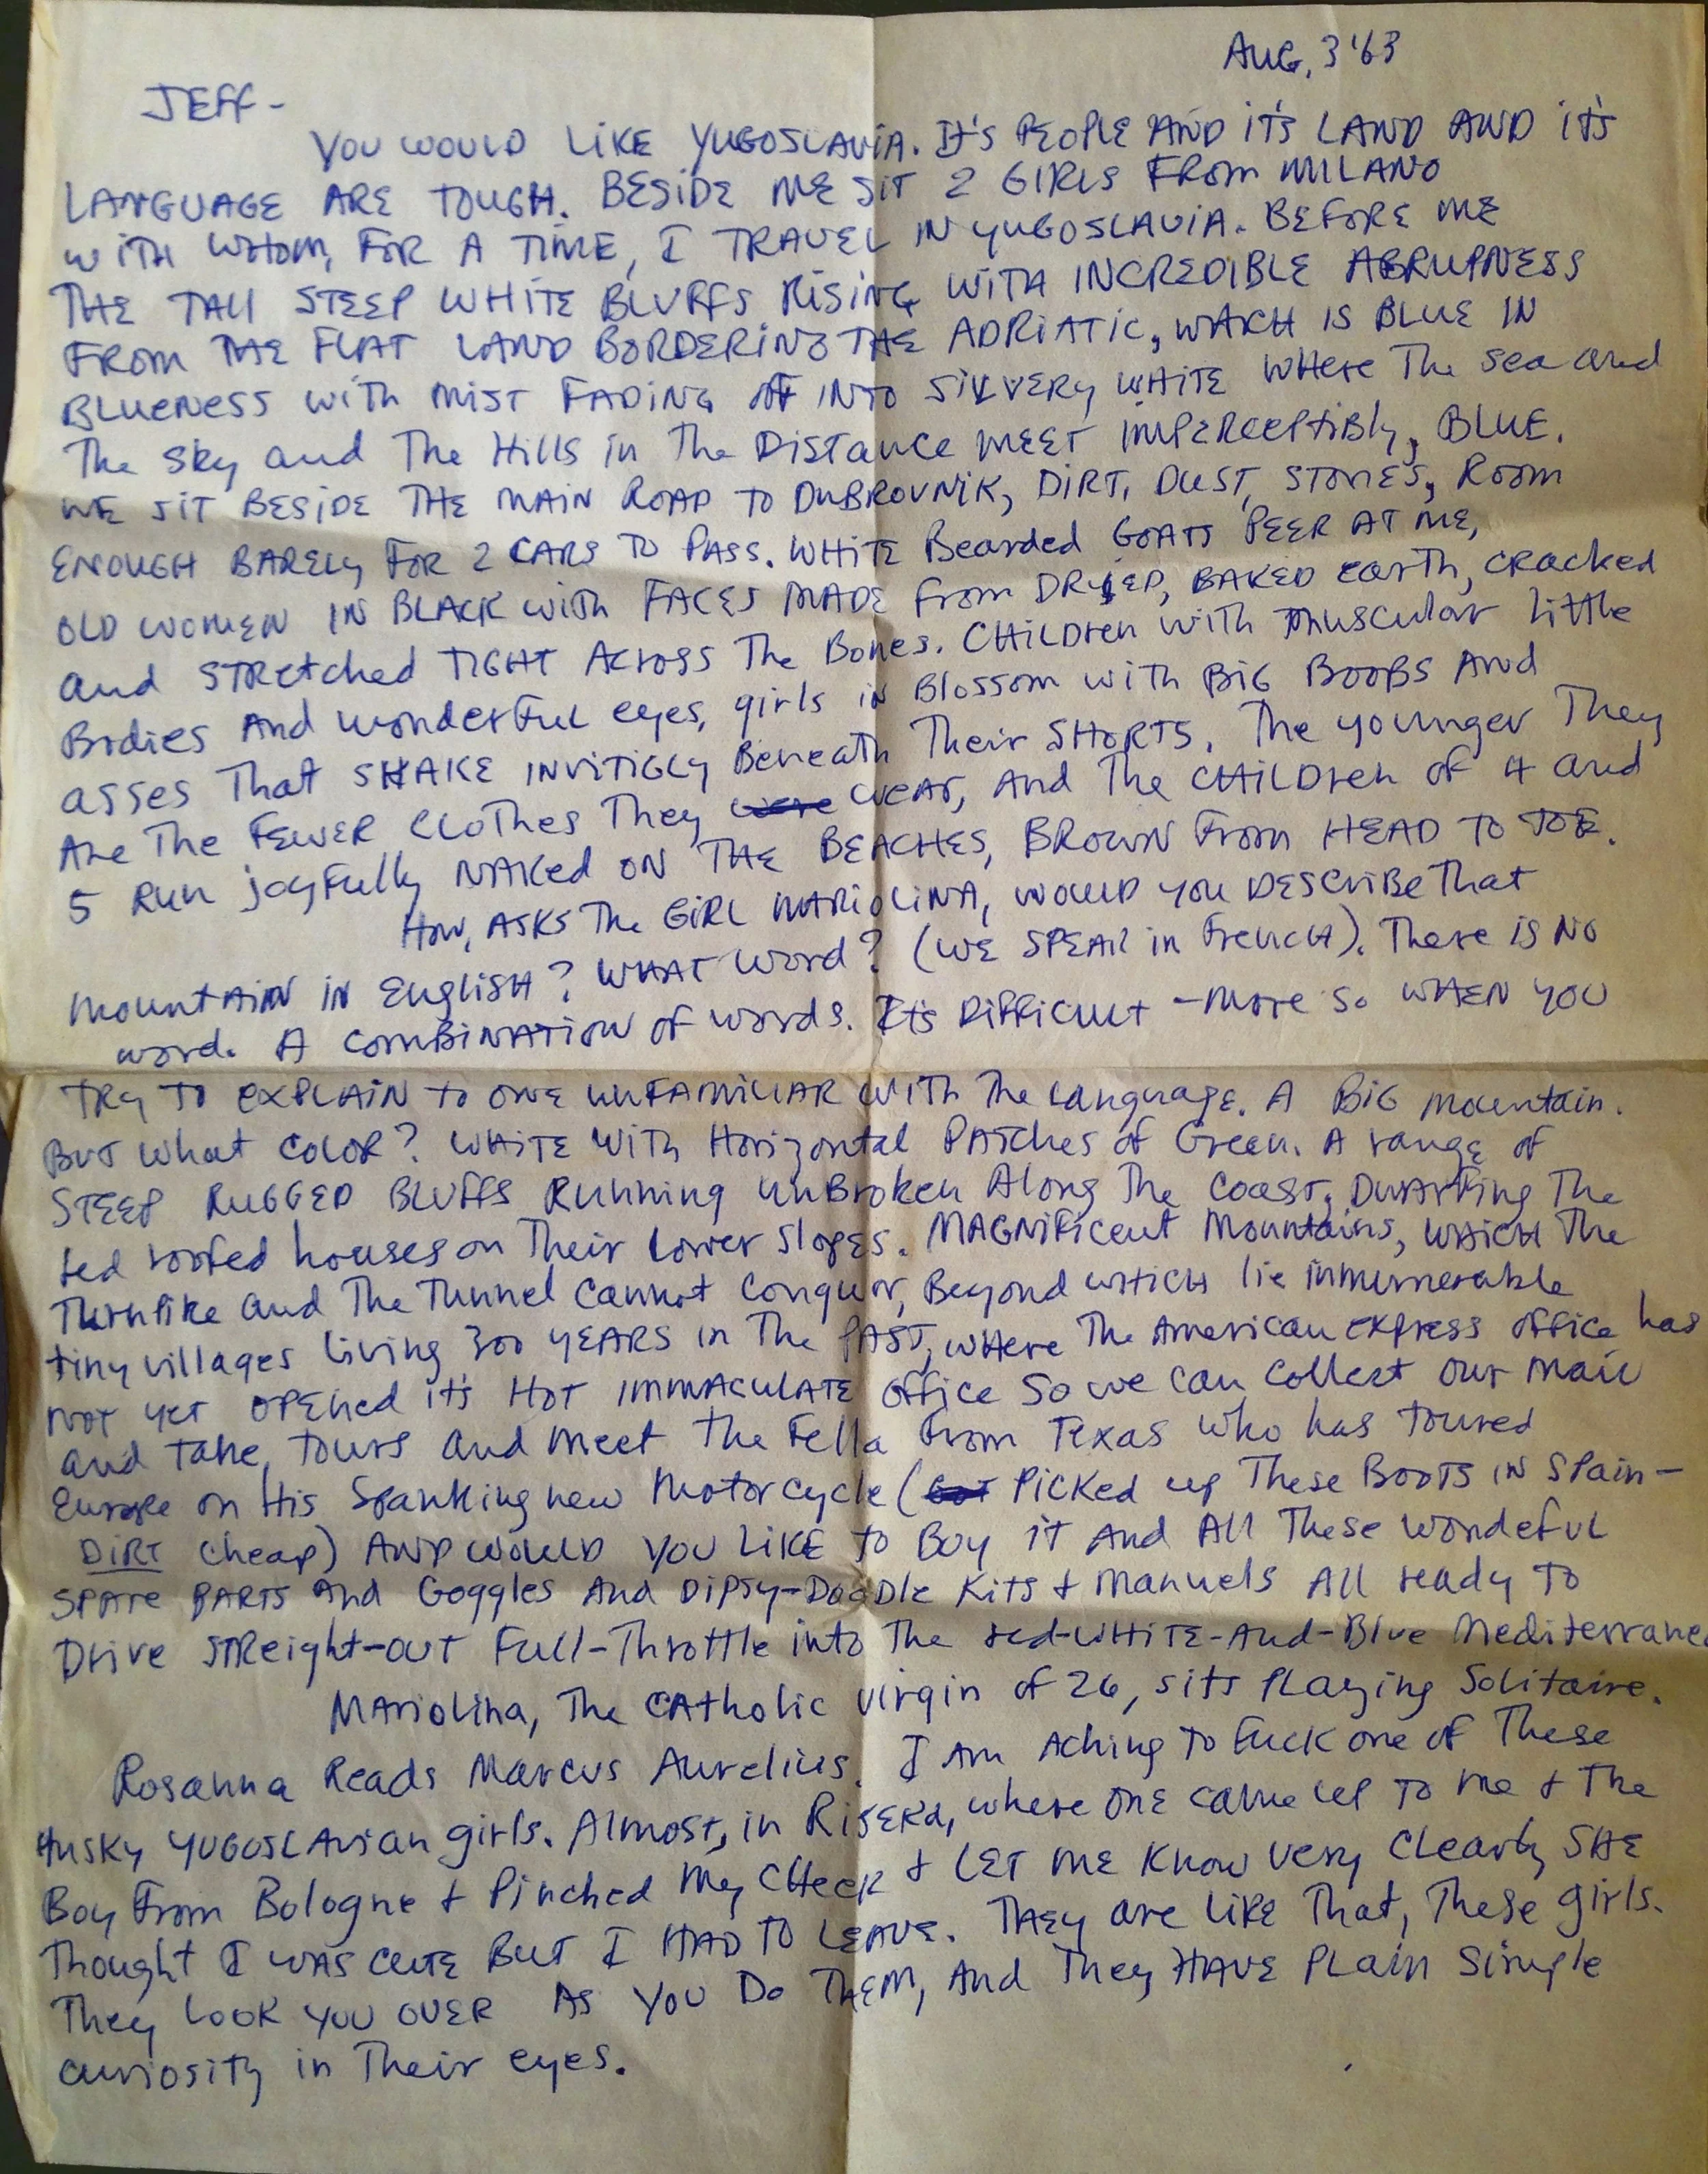 AUG, 3 '63
JEFF -
YOU WOULD LIKE YUGOSLAVIA. It's PEOPLE AND IT'S LAND AND IT'S
LANGUAGE ARE TOUGH. BESIDE ME SIT 2 GIRLS FROM MILANO
WITH WHOM, FOR A TIME, I TRAVEL IN YUGOSLAVIA. BEFORE ME
THE TALL STEEP WHITE BLUFFS RISING WITH INCREDIBLE ABRUPNESS
FROM THE FLAT LAND BORDERING THE ADRIATIC, WHICH IS BLUE IN
BLUENESS WITH MIST FADING OFF INTO SILVERY WHITE WHERE The sea and
The sky and The Hills in The Distance MEET IMPERCEPTIBLY, BLUE.
WE SIT BESIDE THE MAIN ROAD TO DUBROVNIK, DIRT, DUST, STONES, ROOM
ENOUGH BARELY FOR 2 CARS TO PASS. WHITE Bearded GOATS PEER AT ME,
OLD WOMEN IN BLACK WITH FACES MADE From DRIED, BAKED earth, cracked
and STRetched TIGHT ACross The Bones. CHiLDren with muscular little
Bodies And wonderFul eyes, girls in Blossom with BIG BOOBS And
asses That SHAKE INVITIGLY Beneath Their SHORTS. The younger They
Are The FEWER Clothes They were WEAr, And The CHILDren of 4 and
5 Run joyFully NAKed ON THE BEACHES, BROWN From HEAD TO TOE.
How, ASKS The GIRL MARIOLINA, WOULD you DEScriBe That
mountAIN IN EngliSH? WHAT Word? (WE SPEAK in French). There IS NO
word. A COMBINATION of words. It's DifficuLt - More so WHEN YOU
TRY TO EXPLAIN to ONE UNFAMILIAR WITH The Language. A BIG mountain.
BUT What COLOR? WHITE WITH Horizontal PATches of Green. A range of
STEEP RUGGED BLUFFS Running UnBroken Along The Coast, Dwarfing The
red roofed houses on Their lower Slopes. MAGNificent Mountains, WHICH The
Turnpike and The Tunnel Cannot Conquor, Beyond WHICH lie innumerable
tiny villages living 300 YEARS in The PAST, WHere The American express office has
not yet OPENed it's HOT IMMACULATE office So we can collect our mail
and take tours and meet The Fella from Texas who has toured
Europe on His Spanking new Motorcycle (Got PICKed up These BOOTS IN SPain -
DIRT cheap) AND WOULD YOU LIKE to BOY IT And All These wondeful
SPAre PARTS And Goggles And DIPSY-DooDle Kits + Manuels All ready To
Drive STReight-out Full-Throttle into The red-WHITE-And-Blue Mediterranea
MArioLina, The CAtholic virgin of 26, sits PLaying Solitaire.
Rosanna Reads Marcus Aurelius. I Am Aching To Fuck one of These
HuSKY YUGOSLAvian girls. Almost, in RijEKa, where ONE came up To me + The
Boy From Bologne + Pinched My CHeek + LET ME Know very Clearly SHE
Thought I WAS CUTE BUT I HAD TO LEAVE. THEY are LIKE That, These girls.
They LOOK YOU OVER AS YOU Do THEM, And They HAVE PLain Simple
curiosity in Their eyes.